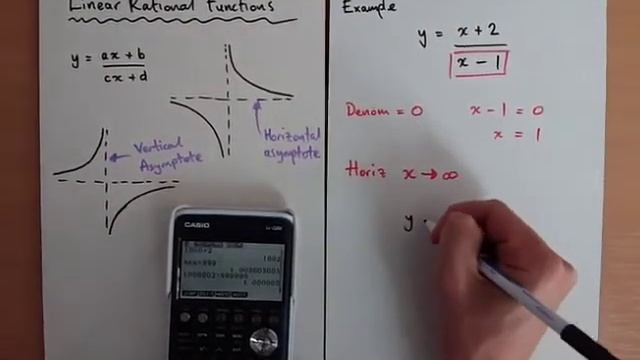 Linear Rational Functions
y = ax + b
cx + d
Vertical
Asymptote
Horizontal
asymptote
CASIO
Example
y = x + 2
x - 1
Denom = 0 x - 1 = 0
x = 1
Horiz x → ∞
y